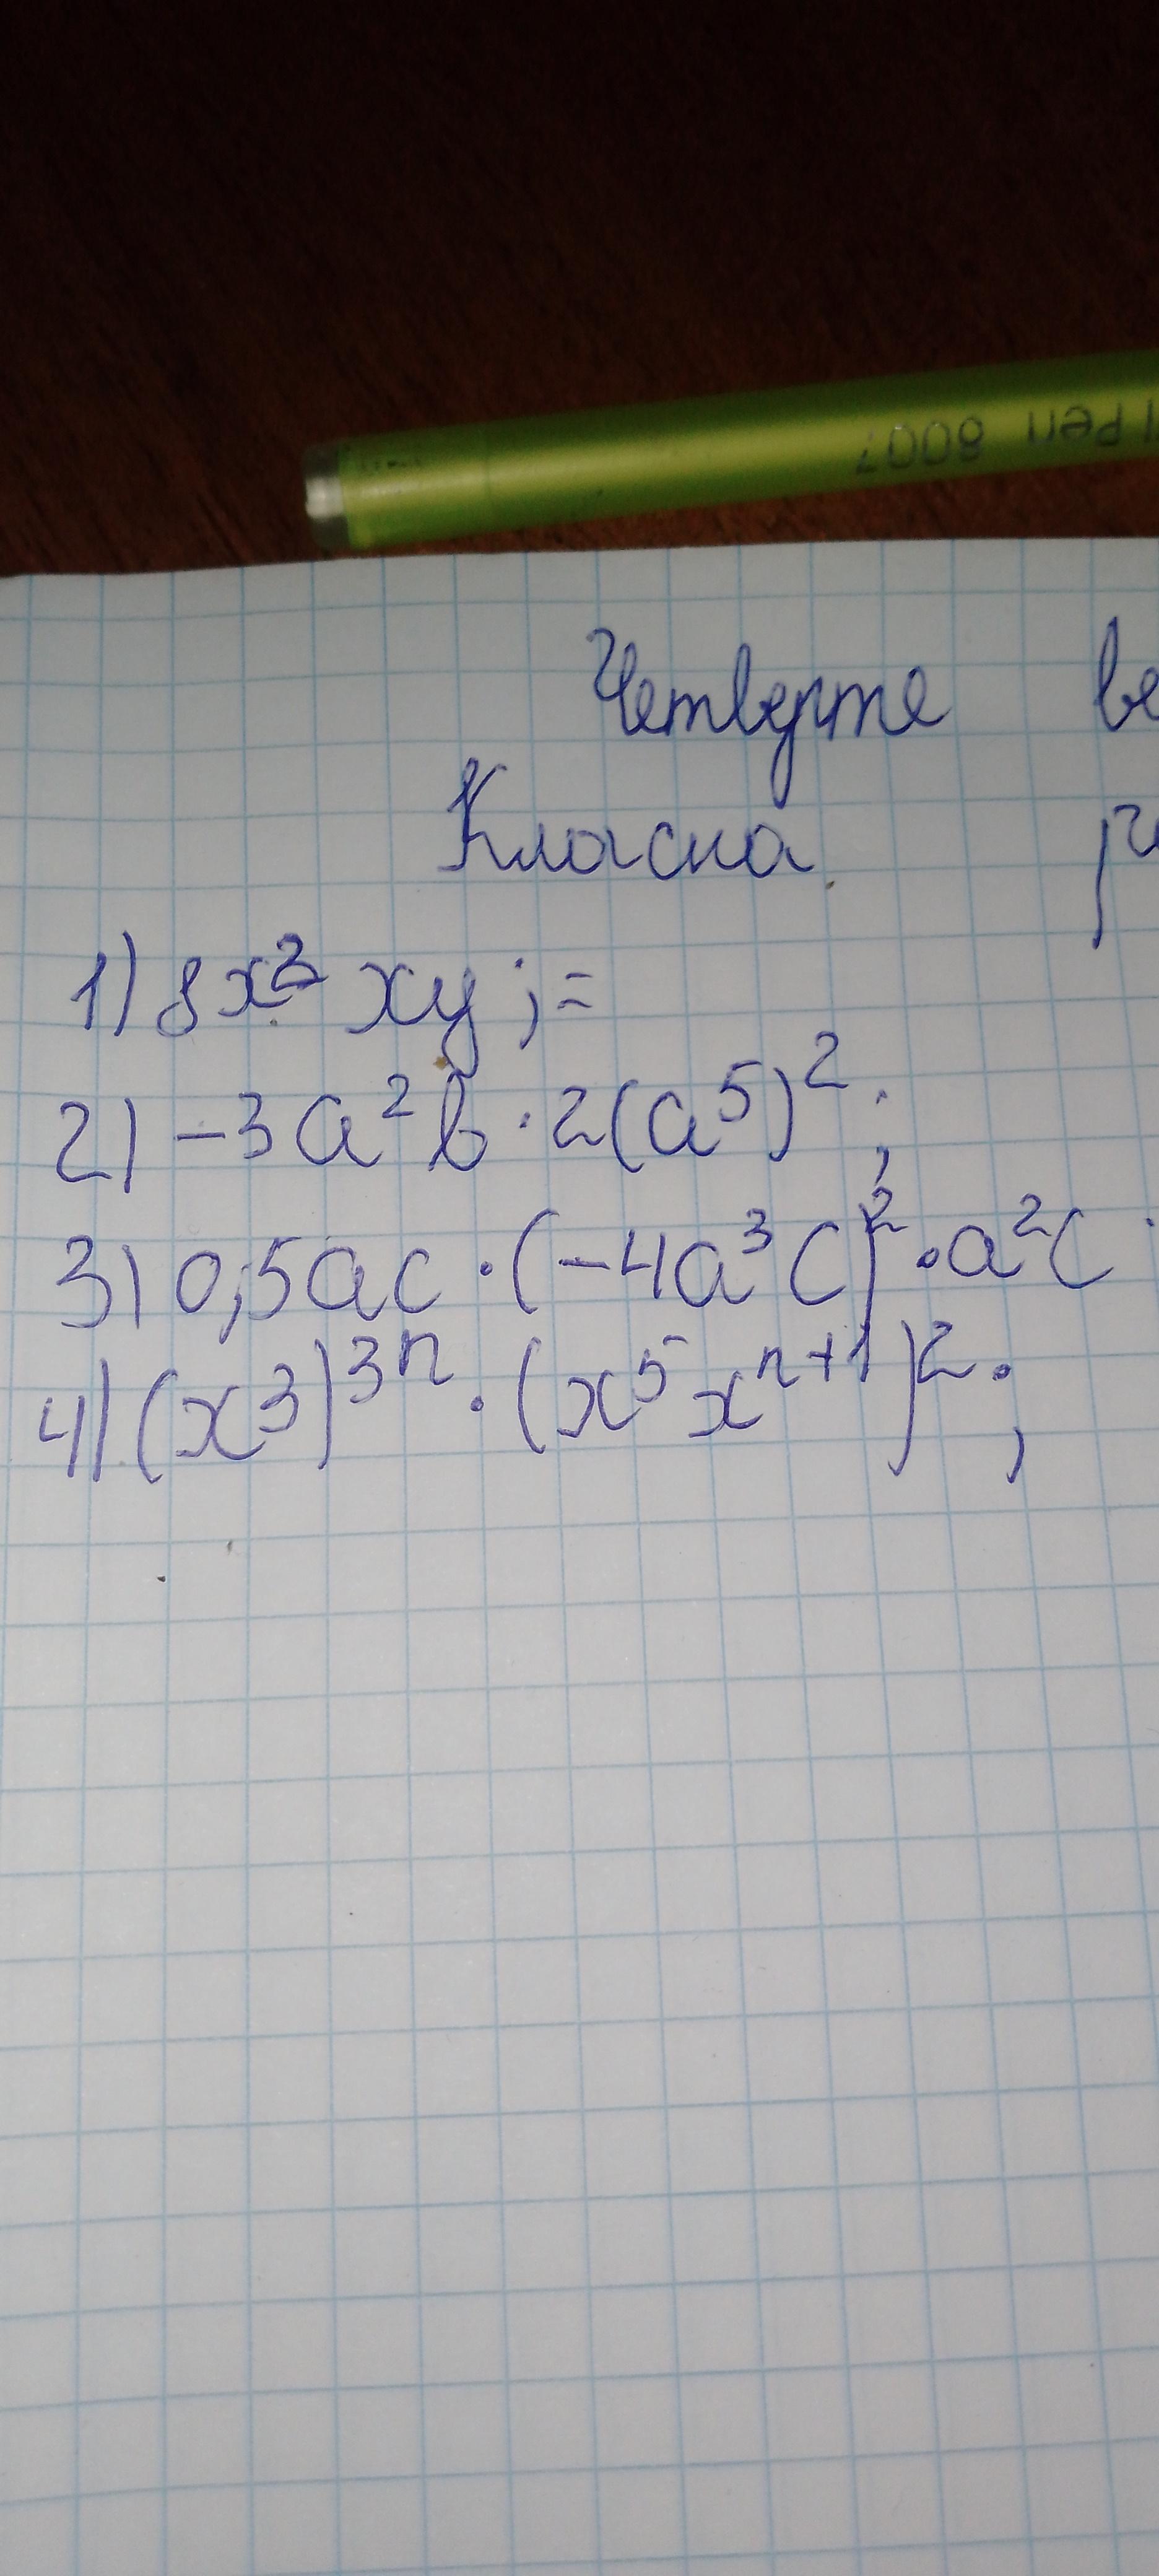 Pen 8007
Четверте ве
Класна р
1) 8x² xy ; =
2) -3a²b · 2(a⁵)² ;
3) 0,5ac · (-4a³c)² · a²c
4) (x3)³ⁿ · (x⁵xⁿ⁺¹)² ;